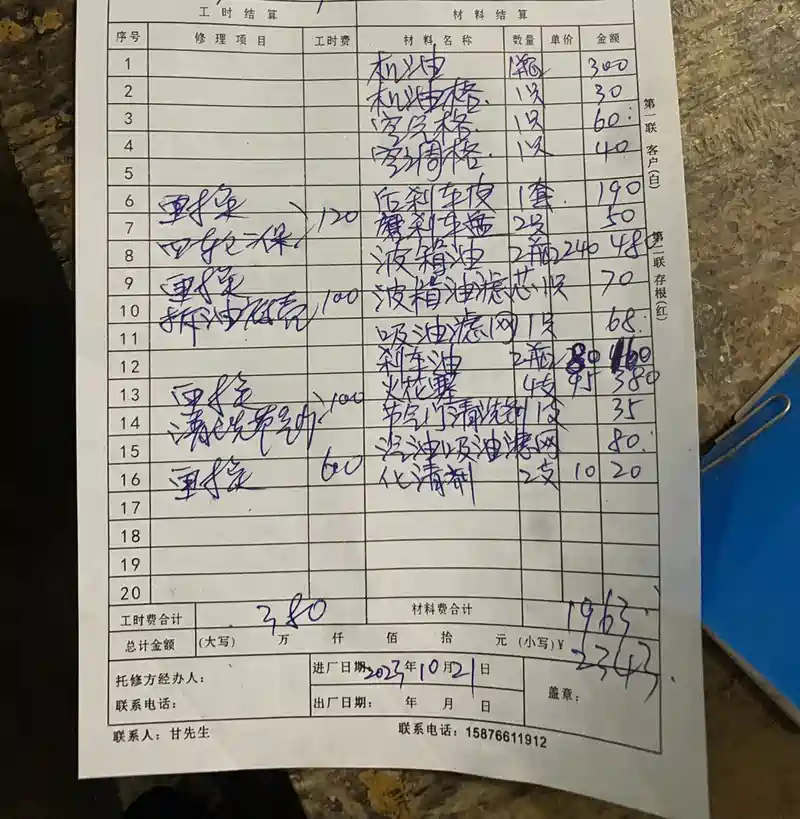 工时结算 材料结算
序号 修理项目 工时费 材料名称 数量 单价 金额
1 机油 1瓶 300
2 机油格. 1只 30
3 空气格. 1只 60
4 空调格. 1只 40
5
6 更换 120 后刹车皮 1套 190
7 四轮保 磨刹车盘 2只 50
8 波箱油 2瓶 240 480
9 更换 100 波箱油滤芯 1只 70
10 拆油底壳
11 吸油滤网 1只 68
12 刹车油 2瓶 80 160
13 更换 100 火花塞 4支 95 380
14 清洗节气门 节气门清洗剂 1支 35
15 汽油吸油滤网 80
16 更换 60 化清剂 2支 10 20
17
18
19
20
工时费合计 380 材料费合计 1963
总计金额 (大写) 万 仟 佰 拾 元 (小写)¥ 2343
托修方经办人: 进厂日期: 2023年10月21日 盖章:
联系电话: 出厂日期: 年 月 日
联系人: 甘先生 联系电话: 15876611912
第一联 客户(白)
第二联 存根(红)